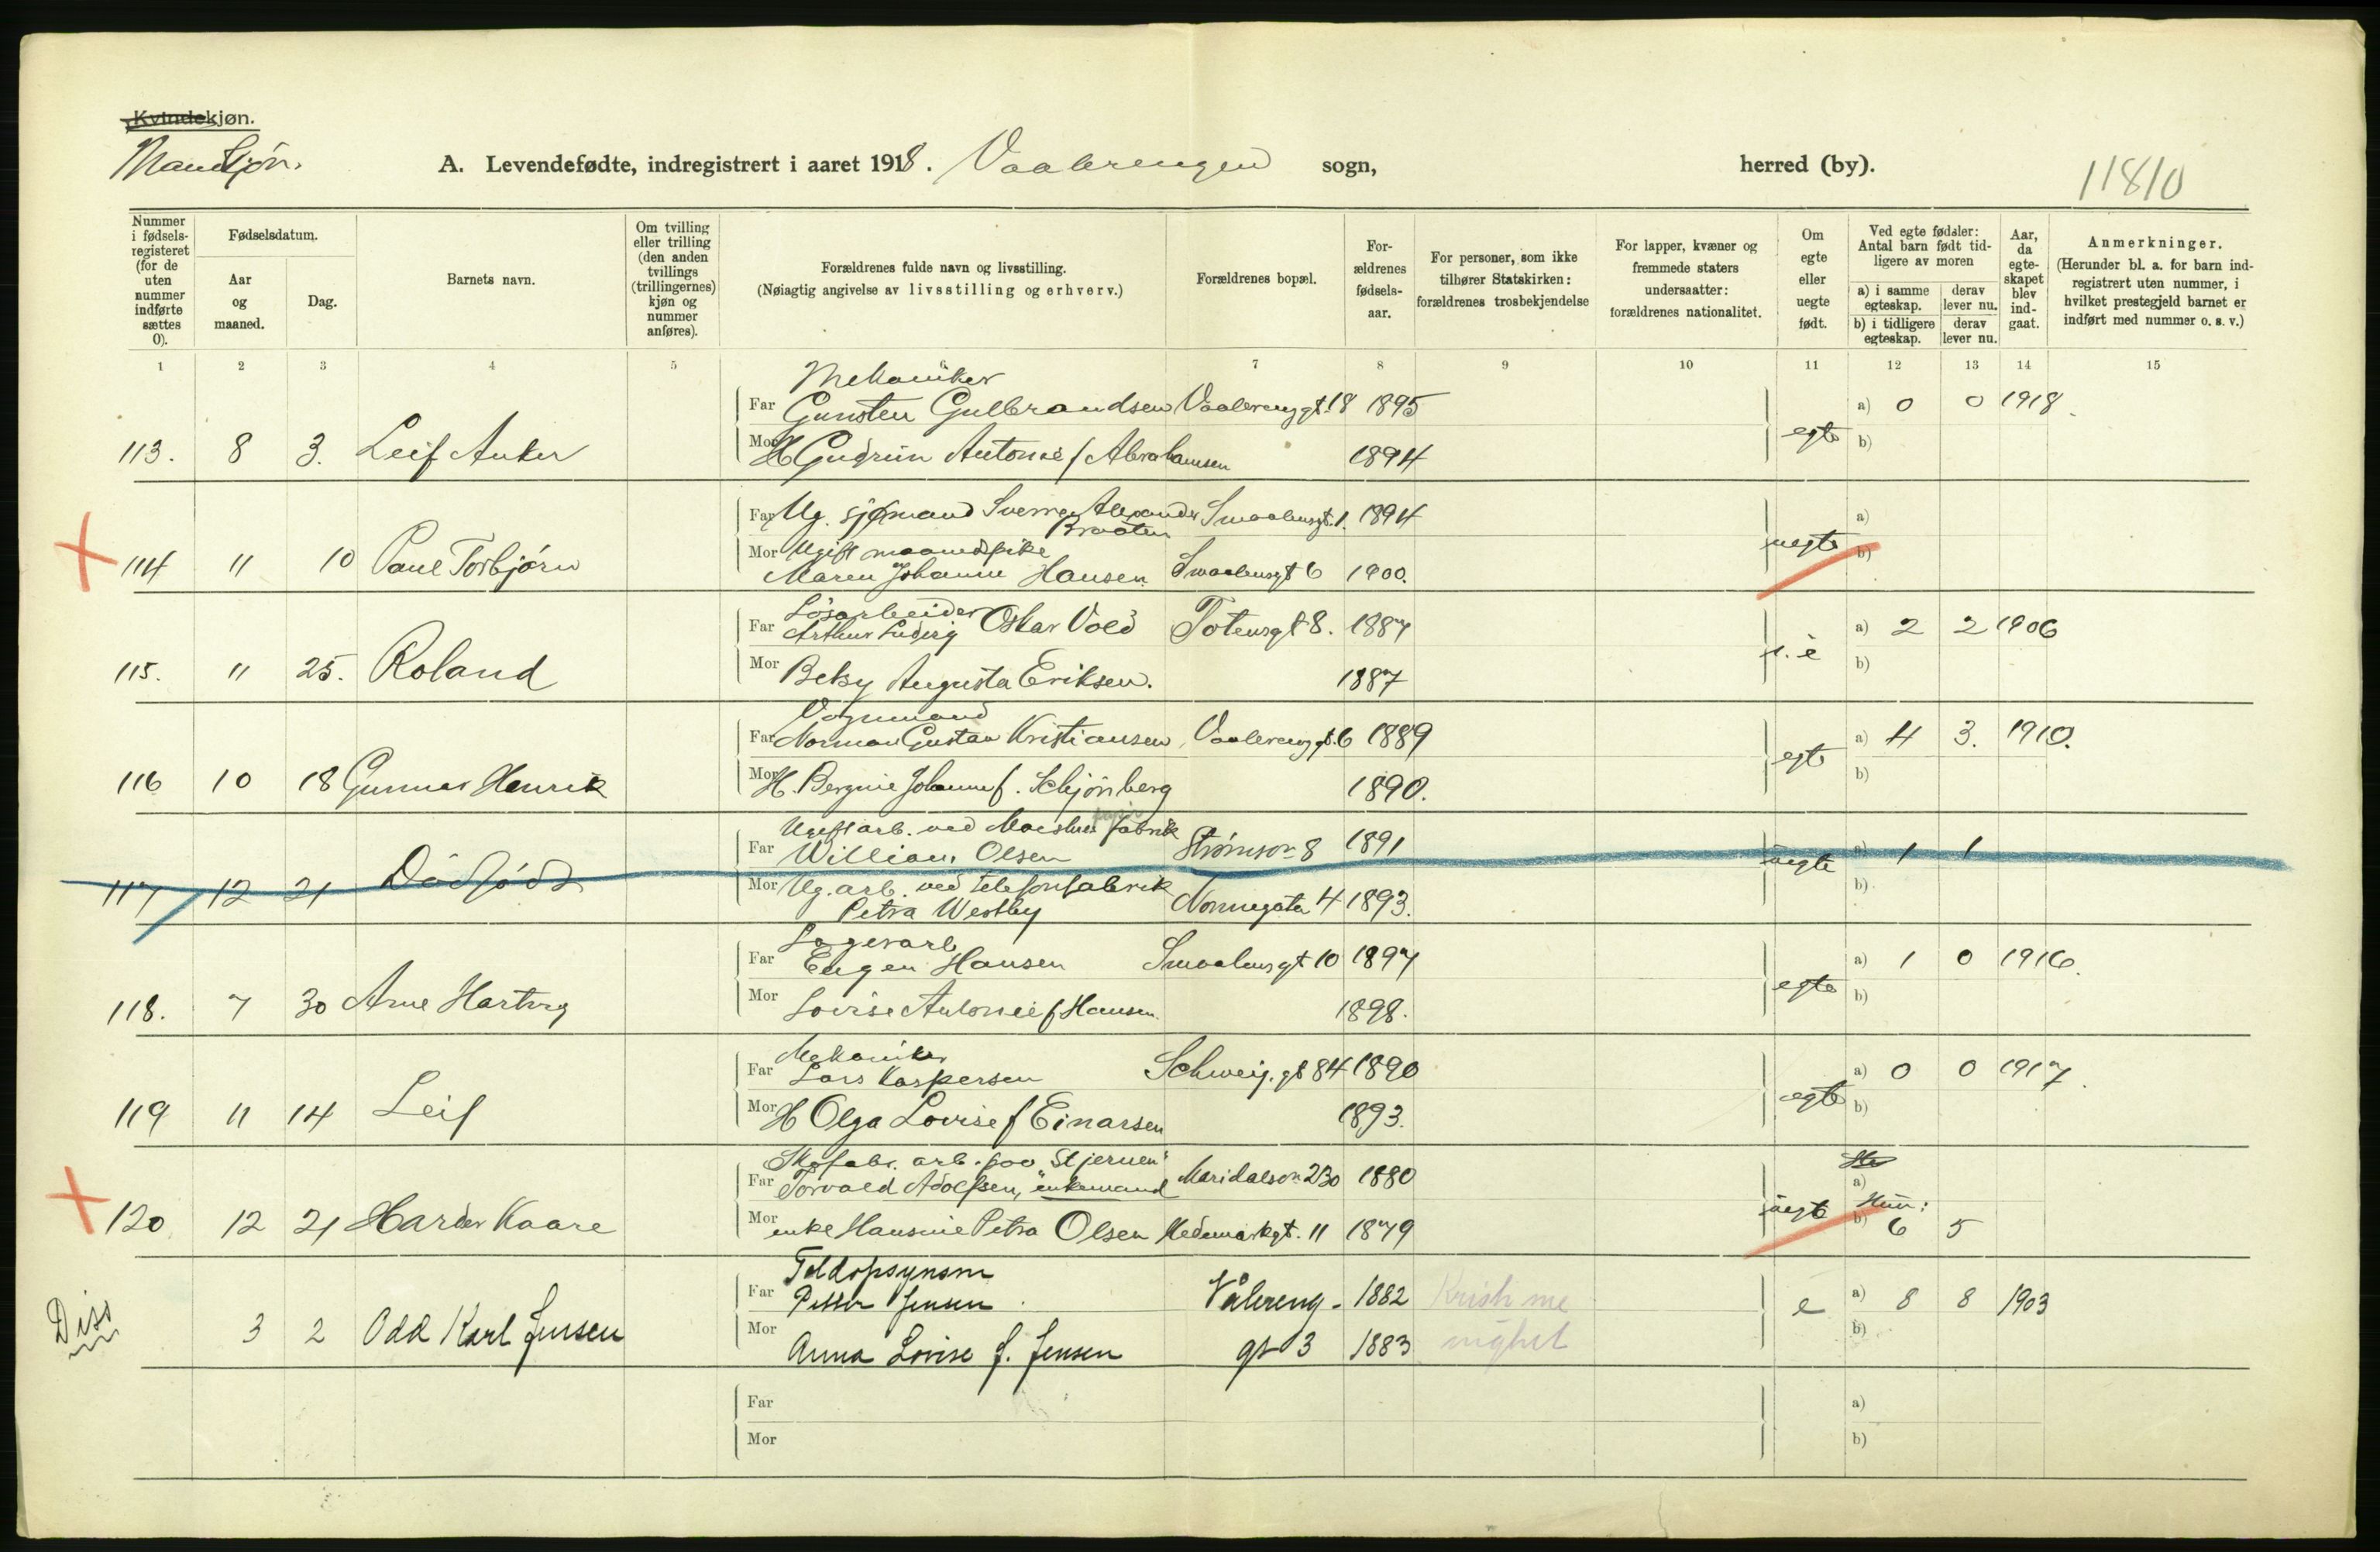 Kvindekjøn.
Mandkjøn.
A. Levendefødte, indregistrert i aaret 1918. Vaalerengen sogn, herred (by).
11810
Nummer i fødselsregisteret (for de uten nummer indførte sættes 0).
Fødselsdatum.
Aar og maaned.
Dag.
Barnets navn.
Om tvilling eller trilling (den anden tvillings (trillingernes) kjøn og nummer anføres).
Forældrenes fulde navn og livsstilling.
(Nøiagtig angivelse av livsstilling og erhverv.)
Forældrenes bopæl.
Forældrenes fødselsaar.
For personer, som ikke tilhører Statskirken: forældrenes trosbekjendelse
For lapper, kvæner og fremmede staters undersaatter: forældrenes nationalitet.
Om egte eller uegte født.
Ved egte fødsler: Antal barn født tidligere av moren
a) i samme egteskap. derav lever nu.
b) i tidligere egteskap. derav lever nu.
Aar, da egteskapet blev indgaat.
Anmerkninger.
(Herunder bl. a. for barn indregistrert uten nummer, i hvilket prestegjeld barnet er indført med nummer o. s. v.)
1 2 3 4 5 6 7 8 9 10 11 12 13 14 15
Mekaniker
Far Gunsten Gulbrandsen Vaalerenggt. 18 1895 a) 0 0 1918.
113. 8 3. Leif Anker Mor H Gudrun Antonie f Abrahamsen 1894 egte b)
Far Ug. sjømand Sverre Alexander Braaten Smaalensgt. 1. 1894 a)
114 11 10 Paul Torbjørn Mor Ugift maanedspike uegte b)
Maren Johanne Hansen Smaalensgt 6 1900.
Løsarbeider
Far Arthur Ludvig Oskar Vold Totensgt 8. 1887 a) 2 2 1906
115. 11 25. Roland Mor Betsy Augusta Eriksen. 1887 b)
Vognmand
Far Norman Gustav Kristiansen Vaalerenggt. 6 1889 a) 4 3. 1910.
116 10 18 Gunnar Henrik Mor H. Bergine Johanne f. Schjønberg 1890. egte b)
Ugift arb. ved fabrik
Far William Olsen Strømsvn 8 1891 a) 1 1
117 12 21 Dødfødt Mor Ug. arb. ved telefonfabrik uegte b)
Petra Westby Normegata 4 1893.
Lagerarb
Far Eugen Hansen Smaalensgt 10 1897 a) 1 0 1916.
118. 7 30 Arne Hartvig Mor Lovise Antonie f Hansen. 1898. egte b)
Mekaniker
Far Lars Kaspersen Schweig. gt 84 1890 a) 0 0 1917.
119 11 14 Leif Mor H Olga Lovise f Einarsen 1893. egte b)
Skofabr. arb. paa "Stjernen"
Far Torvald Adolfsen, enkemand Maridalsvn 230 1880 a)
120 12 21 Harder Kaare Mor enke Hansine Petra Olsen Hedemarkgt. 11 1879 uegte Hun: b) 6 5
Toldopsynsm
Far Petter Jensen Vålereng- 1882 a) 8 8 1903
Diss 3 2 Odd Karl Jensen Mor Anna Lovise f. Jensen gt 3 1883 e b)
Far a)
Mor b)